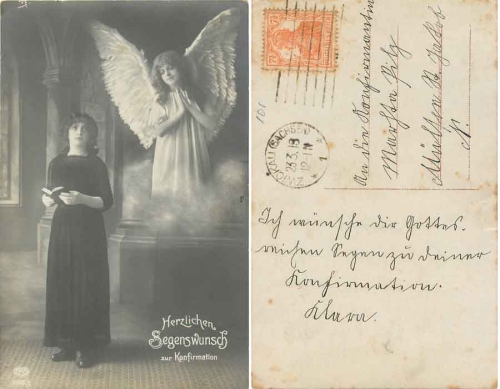 Herzlichen
Segenswunsch
zur Konfirmation
ZWICKAU (SACHSEN)
23.3.18
* 1
101
An die Konfirmantin
Martha Pilz
Mülsen St. Jakob
Ich wünsche dir Gottes
reichen Segen zu deiner
Konfirmation.
Klara.